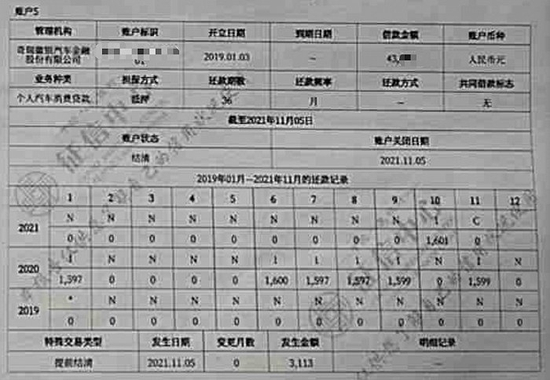 账户5
管理机构 账户标识 开立日期 到期日期 借款金额 账户币种
奇瑞徽银汽车金融股份有限公司 01 2019.01.03 -- 43, 人民币元
业务种类 担保方式 还款期数 还款频率 还款方式 共同借款标志
个人汽车消费贷款 抵押 36 月 -- 无
截至2021年11月05日
账户状态 账户关闭日期
结清 2021.11.05
2019年01月—2021年11月的还款记录
1 2 3 4 5 6 7 8 9 10 11 12
2021 N N N N N N N N N 1 C
0 0 0 0 0 0 0 0 0 1,601 0
2020 1 N N N N 1 1 1 1 N 1 N
1,597 0 0 0 0 1,600 1,597 1,597 1,599 0 1,599 0
2019 * N N N N N N N N N N
0 0 0 0 0 0 0 0 0 0 0 0
特殊交易类型 发生日期 变更月数 发生金额 明细记录
提前结清 2021.11.05 0 3,113 --
征信中心